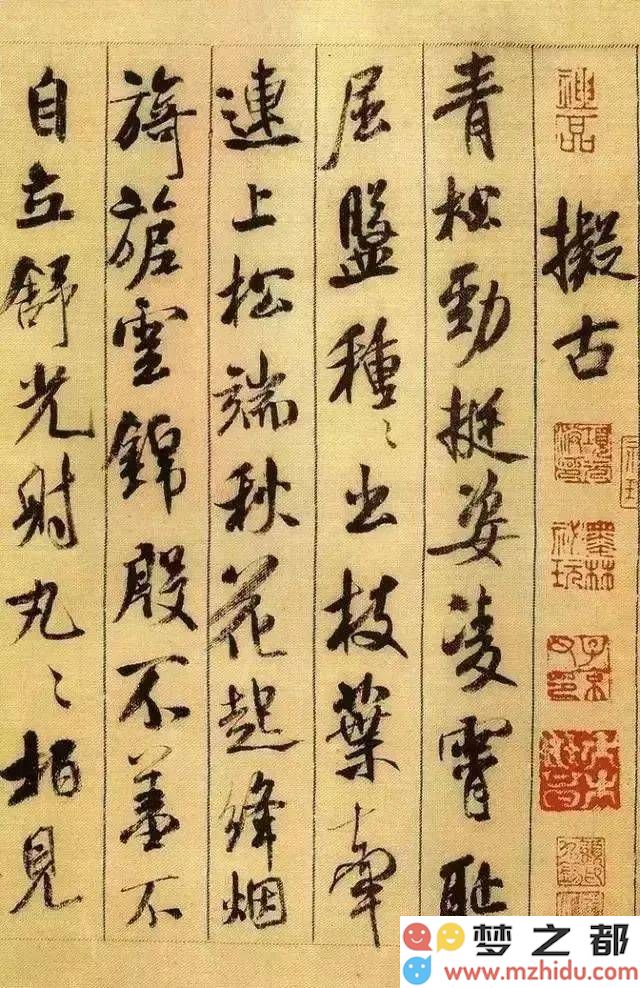 神品
擬古
墨林秘玩
子京父印
青松勁挺姿凌霄恥
屈盤種〻出枝葉牽
連上松端秋花起絳烟
旖旎雲錦殷不羞不
自立舒光射丸〻柏見
梦之都
www.mzhidu.com